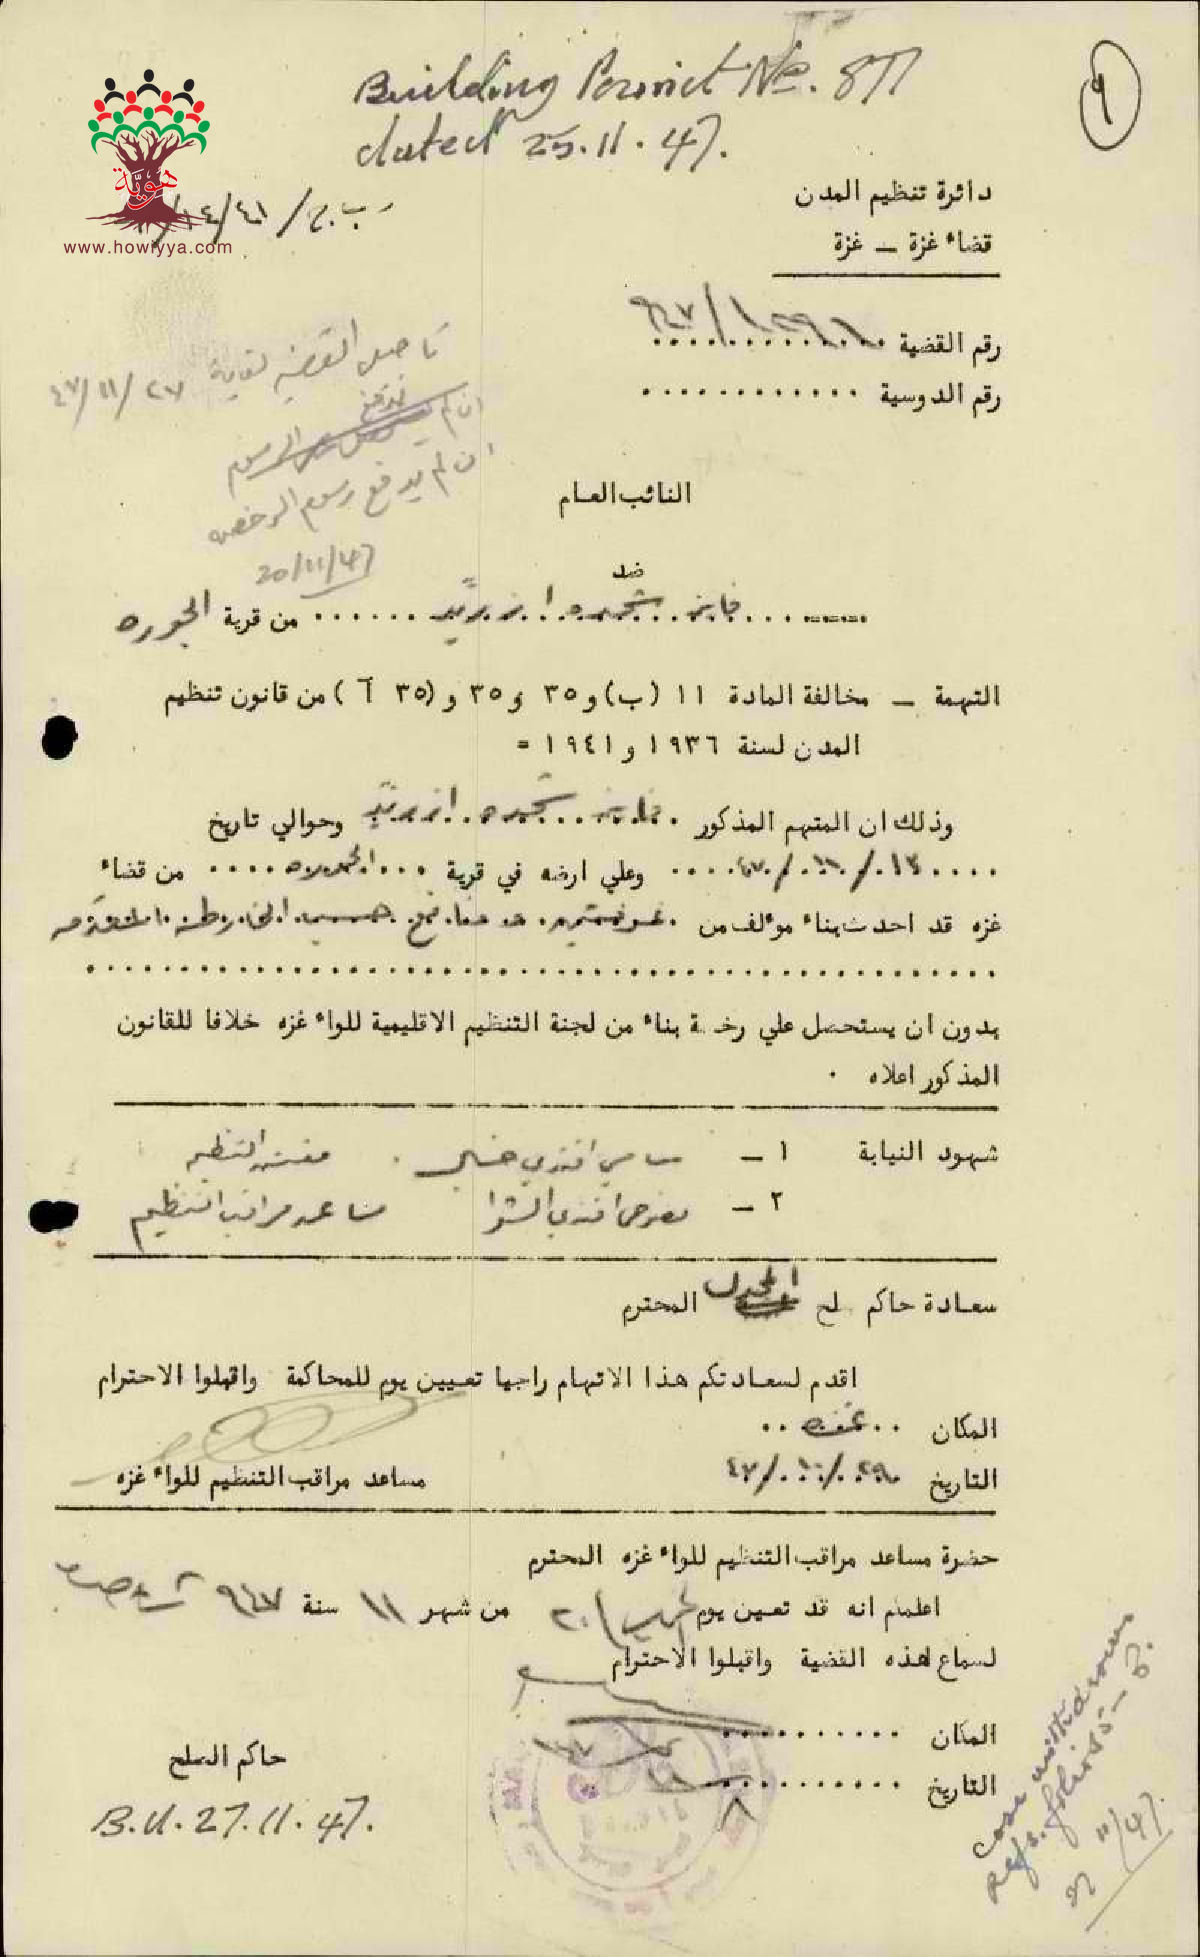 Building Permit No. 877
dated 25.11.47.
هويّة
www.howiyya.com
دائرة تنظيم المدن
قضاء غزة ــ غزة
رقم القضية
رقم الدوسية
تأجيل القضية لغاية ٢٧/١١/٤٧
ان لم تدفع الرسوم
ان لم تدفع رسوم الرخصة
20/11/47
النائب العام
ضد
فايز شحده من قرية الجوره
التهمة ــ مخالفة المادة ١١ (ب) و ٣٥ و ٣٥ و (٣٥ آ) من قانون تنظيم
المدن لسنة ١٩٣٦ و ١٩٤١ =
وذلك ان المتهم المذكور فايز شحده وحوالي تاريخ
٤٧ وعلي ارضه في قرية الجوره من قضاء
غزه قد احدث بناء مؤلف من غرفتين حسب الخارطة المتقدمه
بدون ان يستحصل علي رخصة بناء من لجنة التنظيم الاقليمية للواء غزه خلافا للقانون
المذكور اعلاه .
شهود النيابة ١ ــ سامي افندي مفتش التنظيم
٢ ــ افندي الشوا مساعد مراقب التنظيم
سعادة حاكم صلح المجدل المحترم
اقدم لسعادتكم هذا الاتهام راجيا تعيين يوم للمحاكمة واقبلوا الاحترام
المكان غزه
التاريخ ٢٩/١٠/٤٧
مساعد مراقب التنظيم للواء غزه
حضرة مساعد مراقب التنظيم للواء غزه المحترم
اعلمكم انه قد تعين يوم الخميس ٢٠ من شهر ١١ سنة ٩٤٧
لسماع هذه القضية واقبلوا الاحترام
المكان
التاريخ
حاكم الصلح
B.U. 27.11.47.
case withdrawn